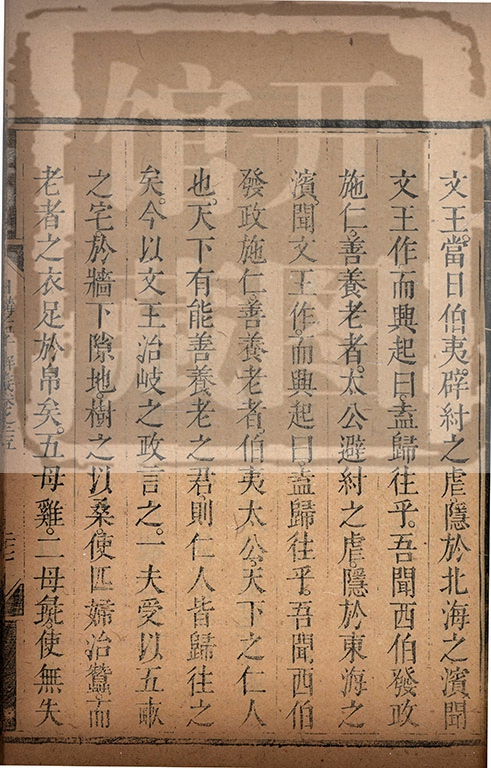 文王。當日伯夷。辟紂之虐。隱於北海之濱。聞
文王作而興起曰。盍歸往乎。吾聞西伯發政
施仁。善養老者。太公避紂之虐。隱於東海之
濱。聞文王作。而興起曰。盍歸往乎。吾聞西伯
發政施仁。善養老者。伯夷太公。天下之仁人
也。天下有能善養老之君。則仁人皆歸往之
矣。今以文王治岐之政言之。一夫受以五畝
之宅。於牆下隙地。樹之以桑。使匹婦治蠶。而
老者之衣足於帛矣。五母雞。二母彘。使無失
日講
解義卷之